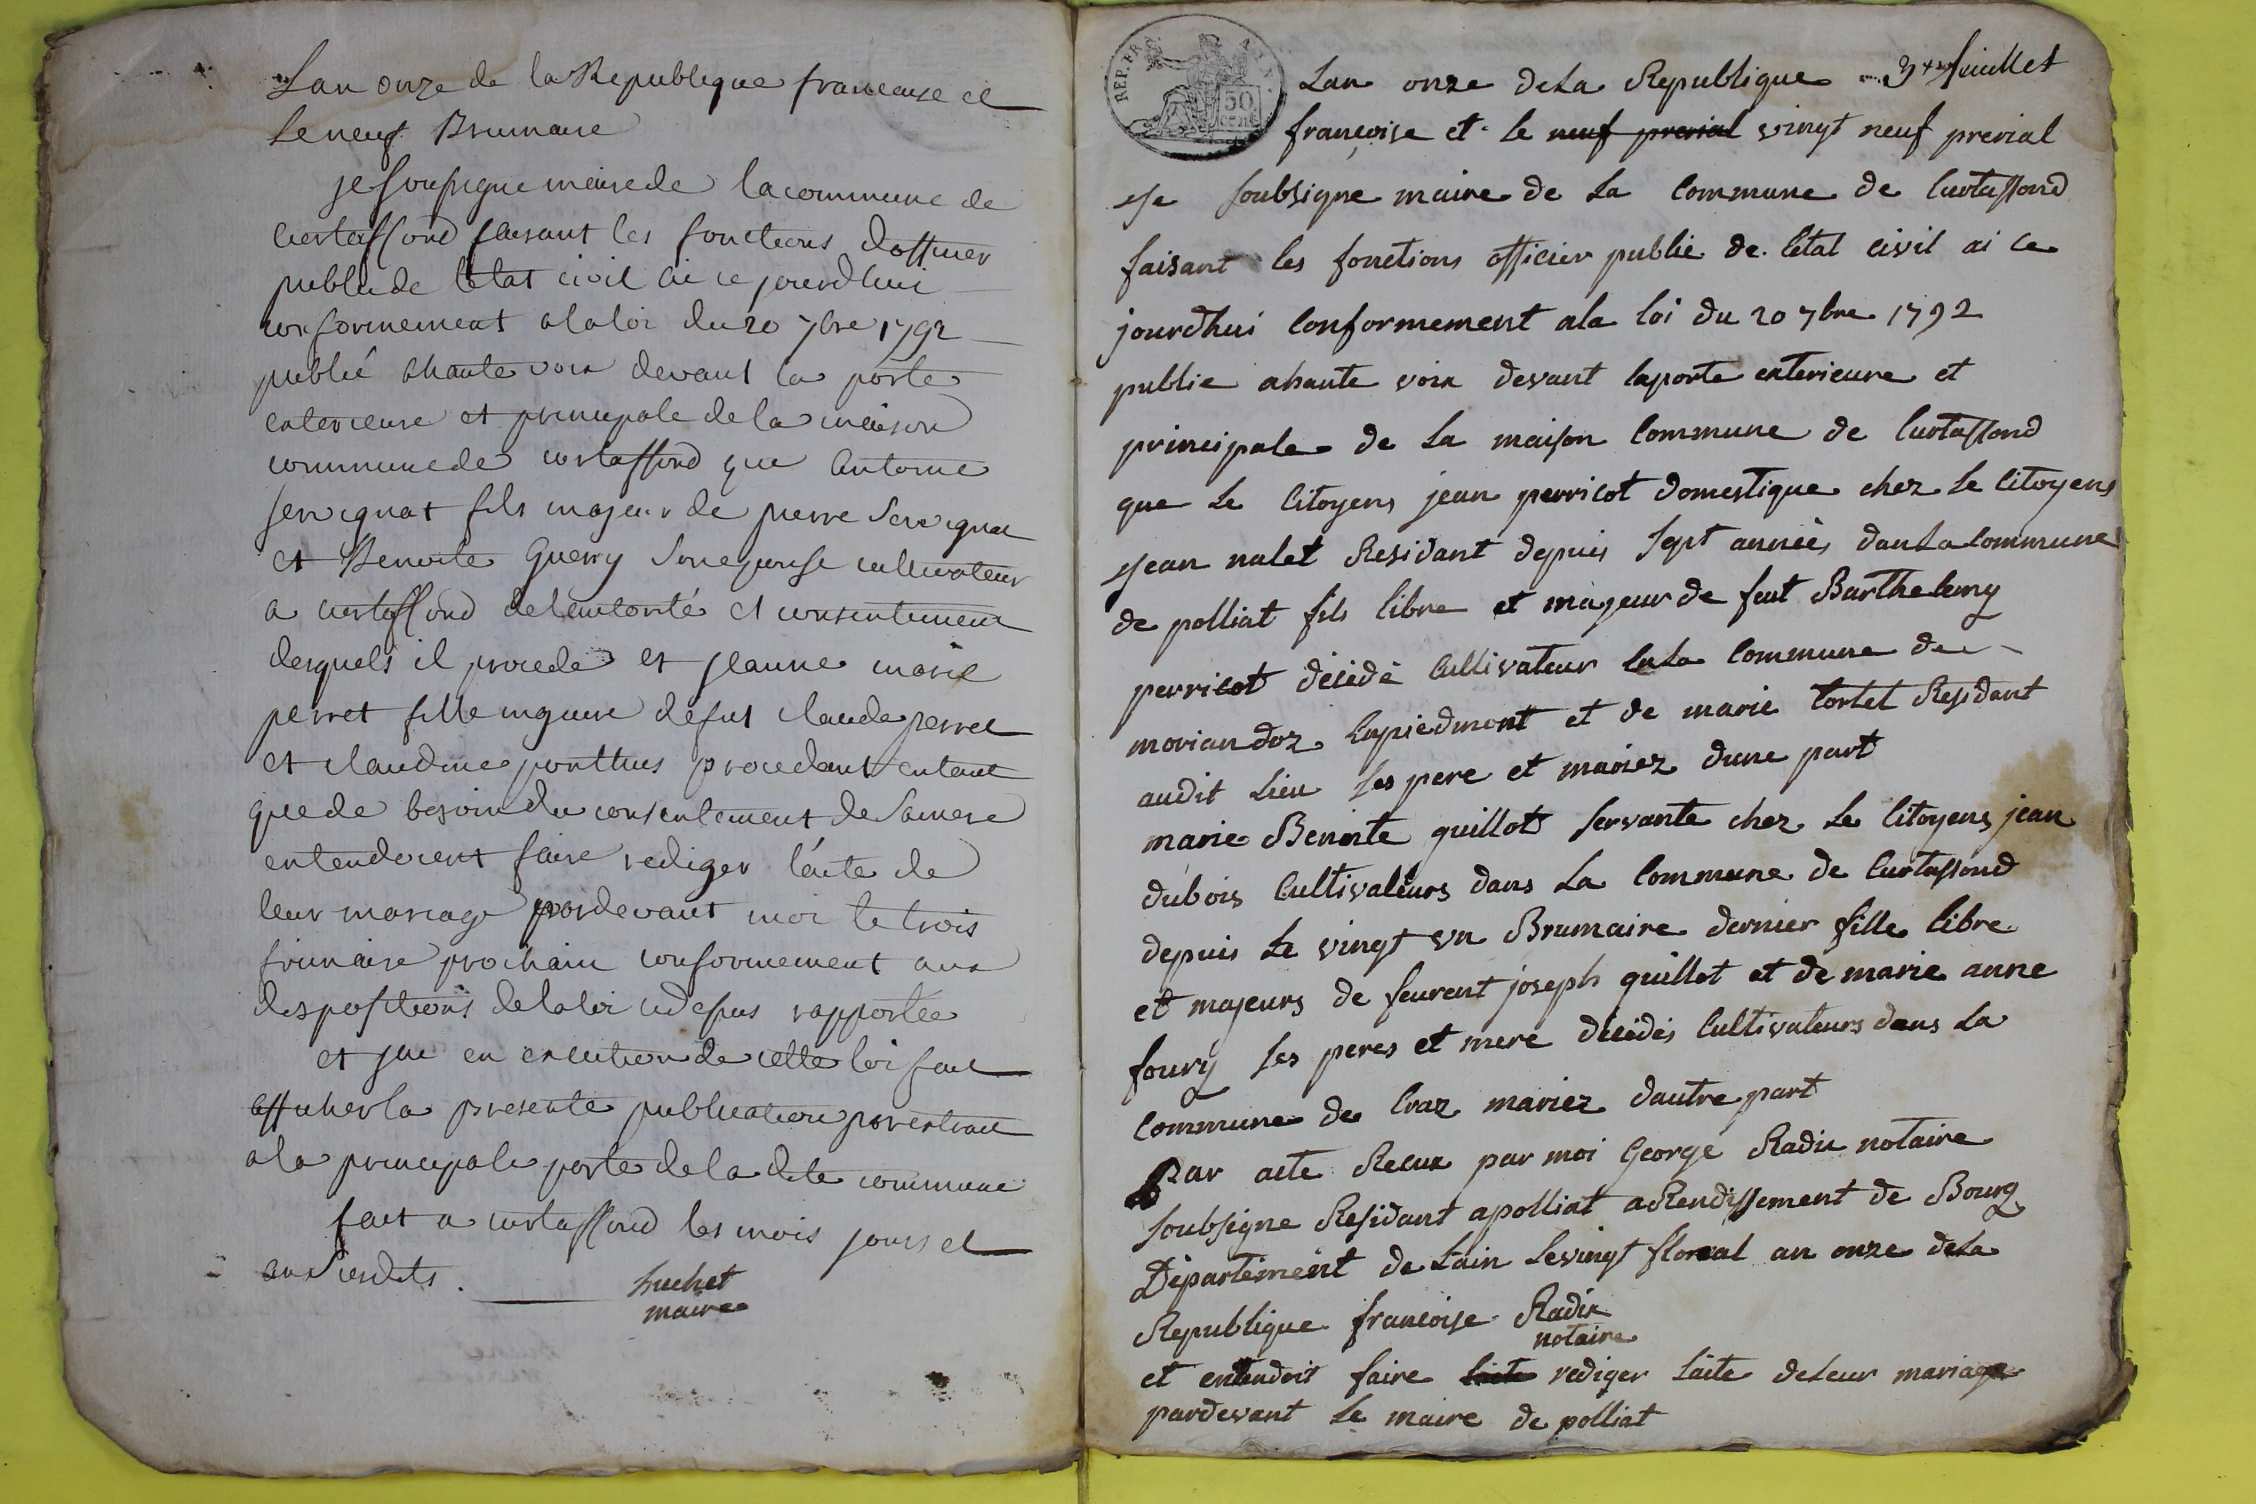 Lan onze de la Republique francaise et
le neuf Brumaire
je soussigne maire de la commune de
curtassond faisant les fonctions dofficier
public de letat civil ai ce jourdhui
conformement a la loi du 20 7bre 1792
publié a haute voix devant la porte
exterieure et principale de la maison
commune de curtassond que antoine
servignat fils majeur de pierre servignat
et Benoite Guerry son epouse cultivateur
a curtassond de lautorité et consentement
desquels il procede et jeanne marie
perret fille mineure de fut claude perret
et claudine ponthus procedant entant
que de besoin du consentement de sa mere
entenderent faire rediger l'acte de
leur mariage pardevant moi le trois
frimaire prochain conformement aux
dispositions de la loi cidessus rapportée
et jai en execution de cette loi fait
afficher la presente publication par extrait
a la principale porte de la dite commune
fait a curtassond les mois jours et
an susdits.
huchet
maire
REP. FRA. AIN.
50
cent
3me feuillet
Lan onze de La Republique
françoise et le neuf prerial vingt neuf prerial
je soubsigne maire de La Commune de Curtassond
faisant les fonctions officier public de letat civil ai ce
jourdhui Conformement ala loi du 20 7bre 1792
publie ahaute voix devant laporte exterieure et
principale de La maison Commune de Curtassond
que Le Citoyens jean perricot domestique chez Le Citoyens
jean nalet Residant depuis sept années dans La Commune
de polliat fils libre et majeur de feut Barthelemy
perricot décédé Cultivateur En La Commune de
moriandoz Enpiedmont et de marie tortel Residant
audit Lieu ses pere et mariez dune part
marie Benoite guillot servante chez Le Citoyens jean
dubois Cultivateurs dans La Commune de Curtassond
depuis Le vingt vn Brumaire dernier fille libre
et majeurs de feurent joseph guillot et de marie anne
foury ses peres et mere décédés Cultivateurs dans La
Commune de Craz mariez dautre part
Par acte Recux par moi George Radix notaire
soubsigne Residant apolliat aRendissement de Bourg
Département de Lain Levingt floreal an onze deLa
Republique francoise Radix
notaire
et entendoit faire lacte rediger lacte deLeur mariage
pardevant Le maire de polliat